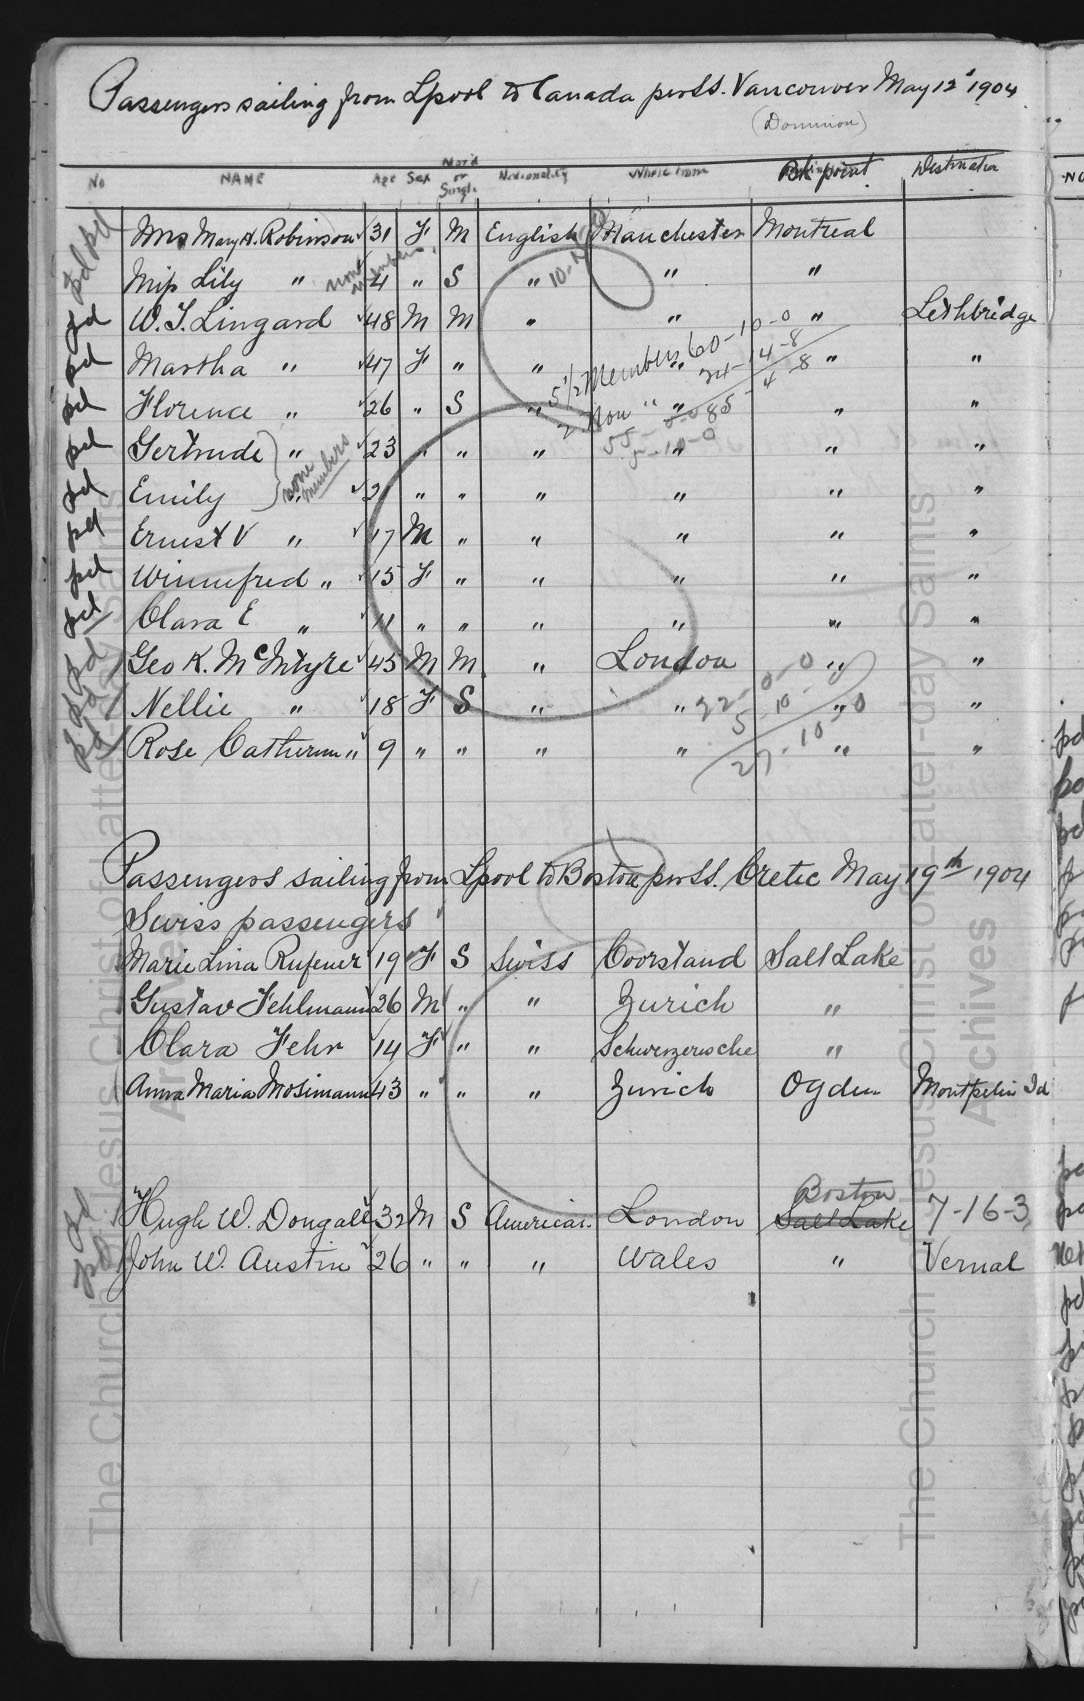 Passengers sailing from Lpool to Canada per SS. Vancouver May 12" 1904
(Dominion)
No NAME Age Sex Mar'd or Single Nationality Whole from Bk point Destination
pd Mrs Mary H. Robinson 31 F M English Manchester Montreal
pd Miss Lily " none members 4 " S " " "
pd W. T. Lingard 48 M M " " " Lethbridge
pd Martha " 47 F " " " " "
pd Florence " 26 " S " " " "
pd Gertrude " 23 " " " " " "
pd Emily " none members 21 " " " " " "
pd Ernest V " 17 M " " " " "
pd Winnefred " 15 F " " " " "
pd Clara E " 11 " " " " " "
pd Geo K. McIntyre 45 M M " London " "
pd Nellie " 18 F S " " " "
pd Rose Catherine " 9 " " " " " "
5 1/2 Members 60-10-0
2 Non " 24-14-8
85-4-8
55-0-0
5-10-0
22-0-0
5-10-0
27-10-0
Passengers sailing from Lpool to Boston per SS. Cretic May 19th 1904
Swiss passengers
Marie Lina Rufener 19 F S Swiss Coorstand Salt Lake
Gustav Fehlmann 26 M " " Zurich "
Clara Fehr 14 F " " Schweizerische "
Anna Maria Mosimann 43 " " " Zurich Ogden Montpelier Id
Boston
pd Hugh W. Dougall 32 M S American London Salt Lake 7-16-3
pd John W. Austin 26 " " " Wales " Vernal
The Church of Jesus Christ of Latter-day Saints
Archives
The Church of Jesus Christ of Latter-day Saints
Archives